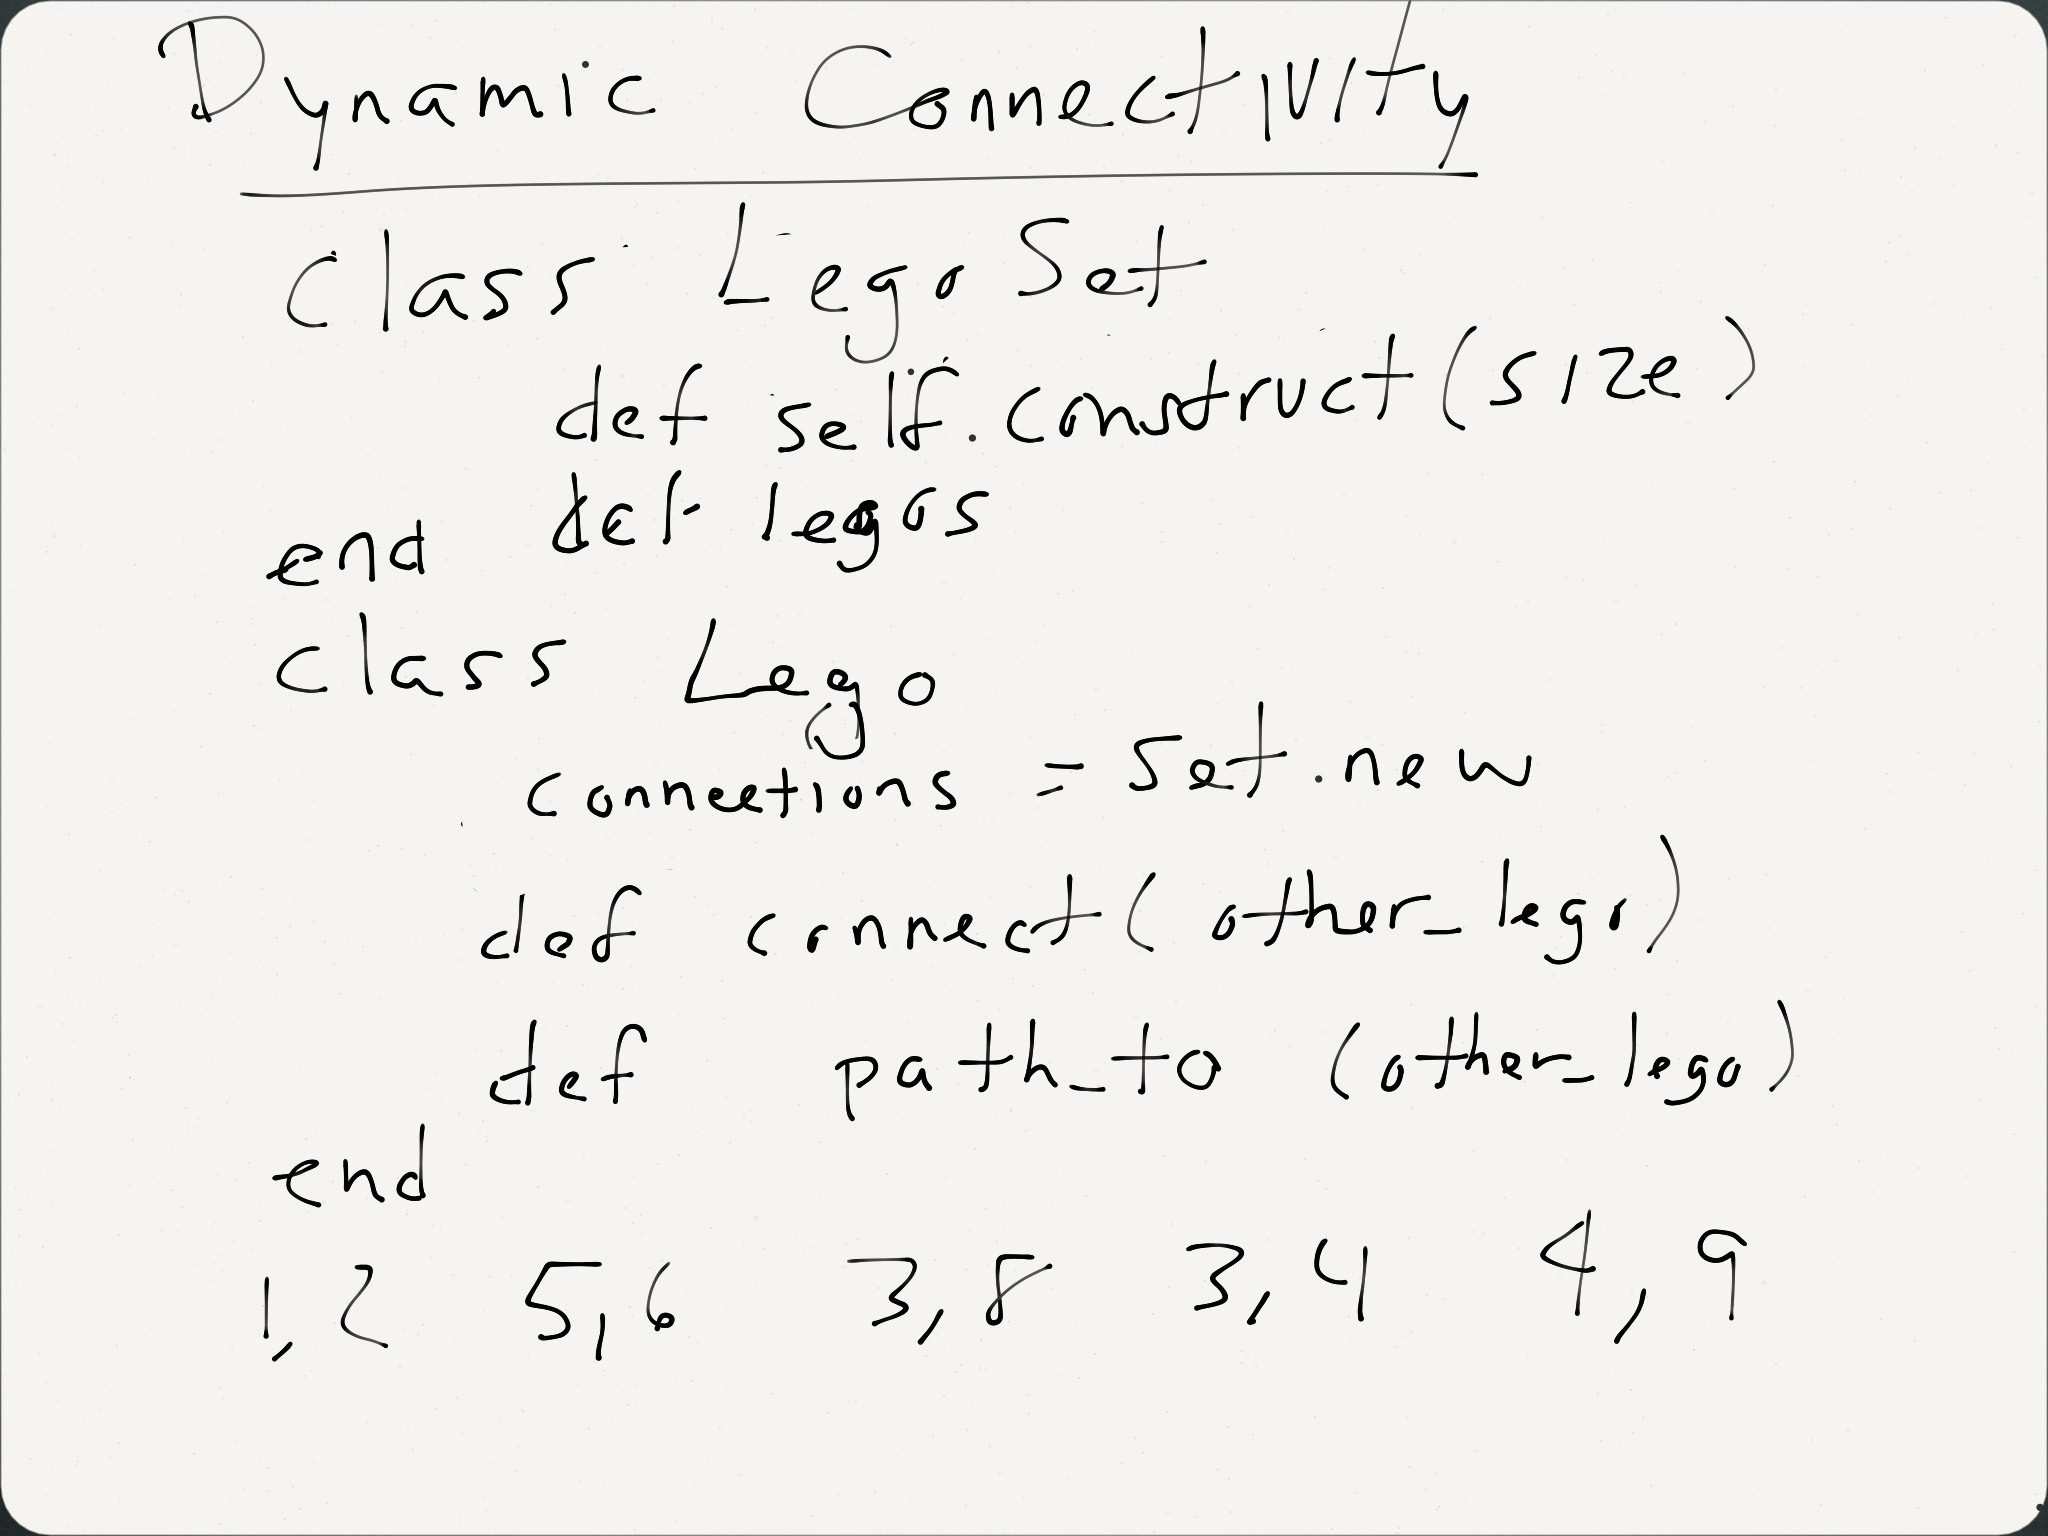 Dynamic Connectivity
class LegoSet
def self.construct(size)
def legos
end
class Lego
connections = Set.new
def connect(other_lego)
def path_to (other_lego)
end
1,2 5,6 3,8 3,4 4,9